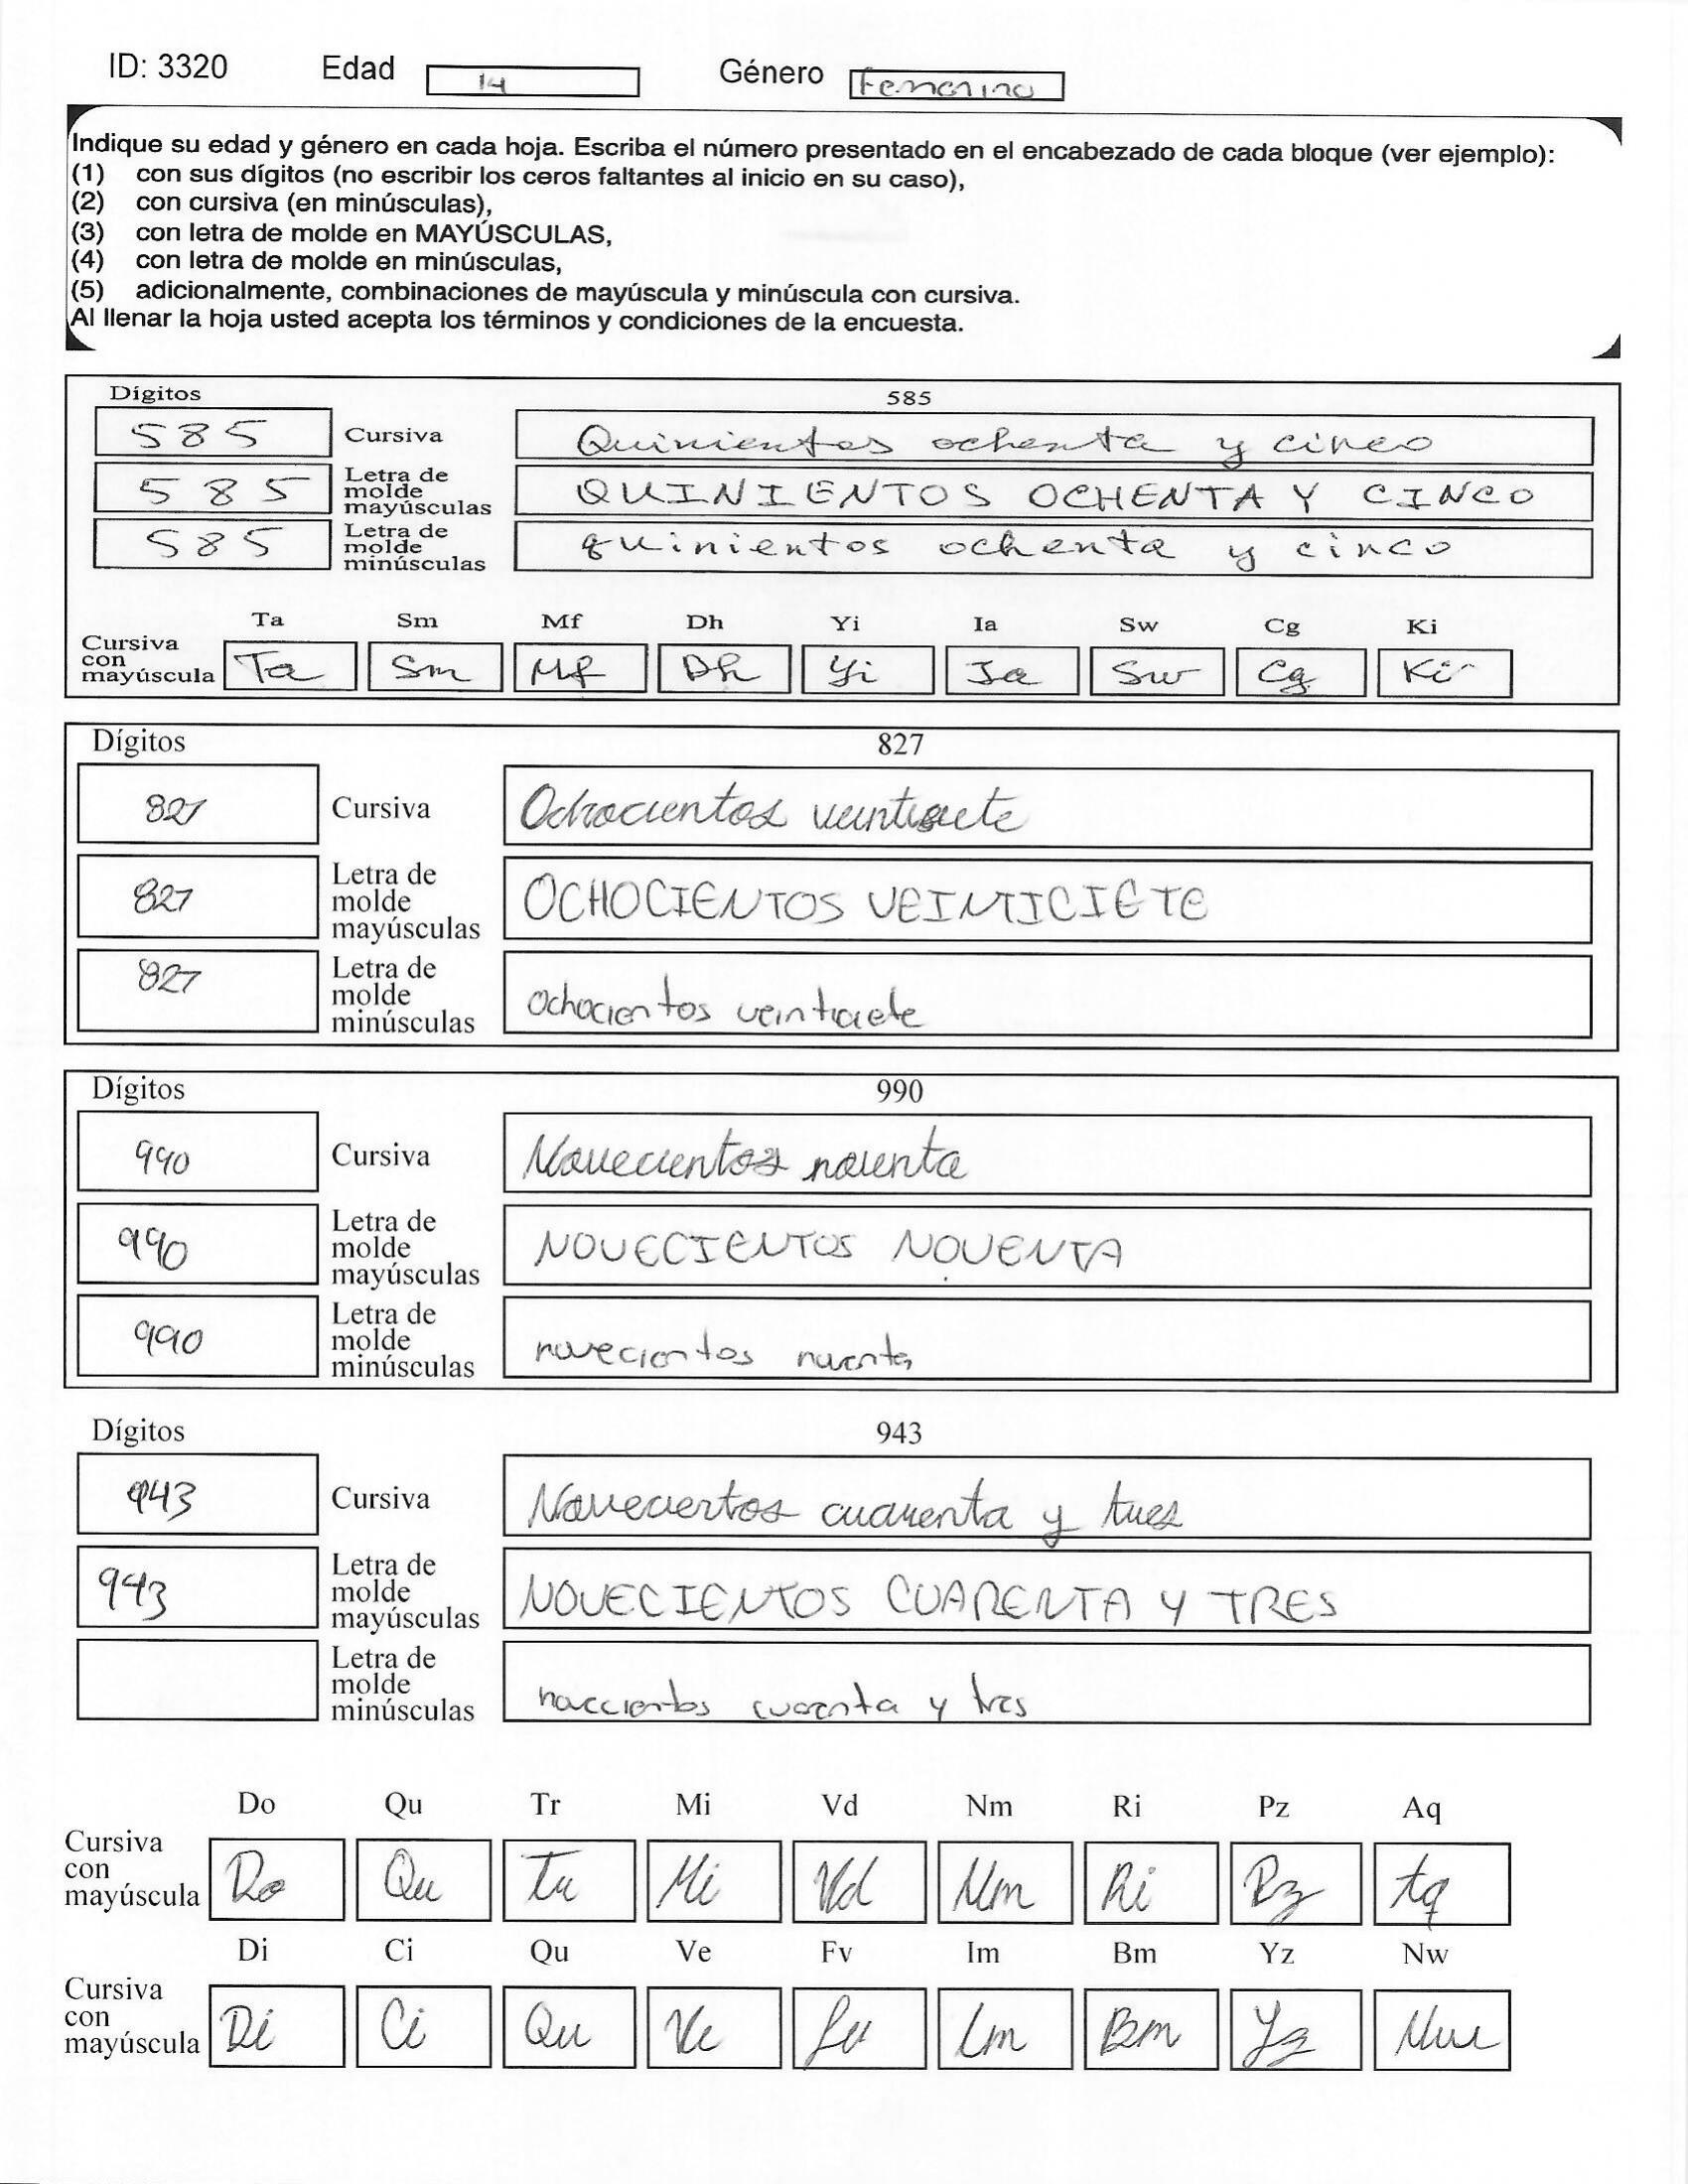 ID: 3320 Edad 14 Género Femenino
Indique su edad y género en cada hoja. Escriba el número presentado en el encabezado de cada bloque (ver ejemplo):
(1) con sus dígitos (no escribir los ceros faltantes al inicio en su caso),
(2) con cursiva (en minúsculas),
(3) con letra de molde en MAYÚSCULAS,
(4) con letra de molde en minúsculas,
(5) adicionalmente, combinaciones de mayúscula y minúscula con cursiva.
Al llenar la hoja usted acepta los términos y condiciones de la encuesta.
Dígitos 585
585 Cursiva Quinientos ochenta y cinco
585 Letra de molde mayúsculas QUINIENTOS OCHENTA Y CINCO
585 Letra de molde minúsculas quinientos ochenta y cinco
Ta Sm Mf Dh Yi Ia Sw Cg Ki
Cursiva con mayúscula Ta Sm Mf Dh Yi Ia Sw Cg Ki
Dígitos 827
827 Cursiva Ochocientos veintisiete
827 Letra de molde mayúsculas OCHOCIENTOS VEINTICIETE
827 Letra de molde minúsculas ochocientos veinticiete
Dígitos 990
990 Cursiva Novecientos noventa
990 Letra de molde mayúsculas NOVECIENTOS NOVENTA
990 Letra de molde minúsculas novecientos
Dígitos 943
943 Cursiva Novecientos cuarenta y tres
943 Letra de molde mayúsculas NOVECIENTOS CUARENTA Y TRES
Letra de molde minúsculas novecientos cuarenta y tres
Do Qu Tr Mi Vd Nm Ri Pz Aq
Cursiva con mayúscula Do Qu Tr Mi Vd Nm Ri Pz Aq
Di Ci Qu Ve Fv Im Bm Yz Nw
Cursiva con mayúscula Di Ci Qu Ve Fv Im Bm Yz Nw